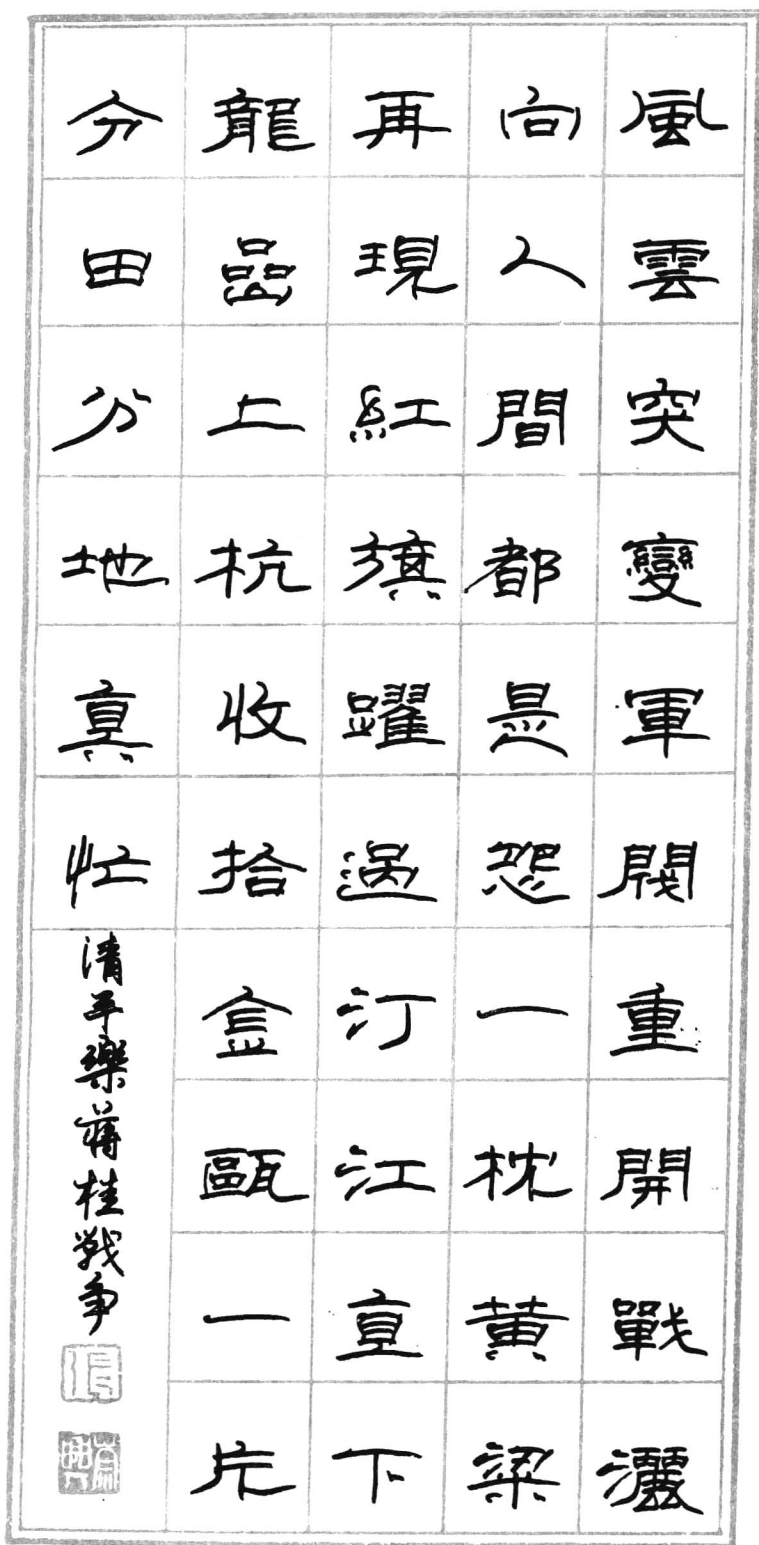 風雲突變軍閥重開戰灑
向人間都是怨一枕黃粱
再現紅旗躍過汀江直下
龍嵒上杭收拾金甌一片
分田分地真忙
清平樂蔣桂戰爭